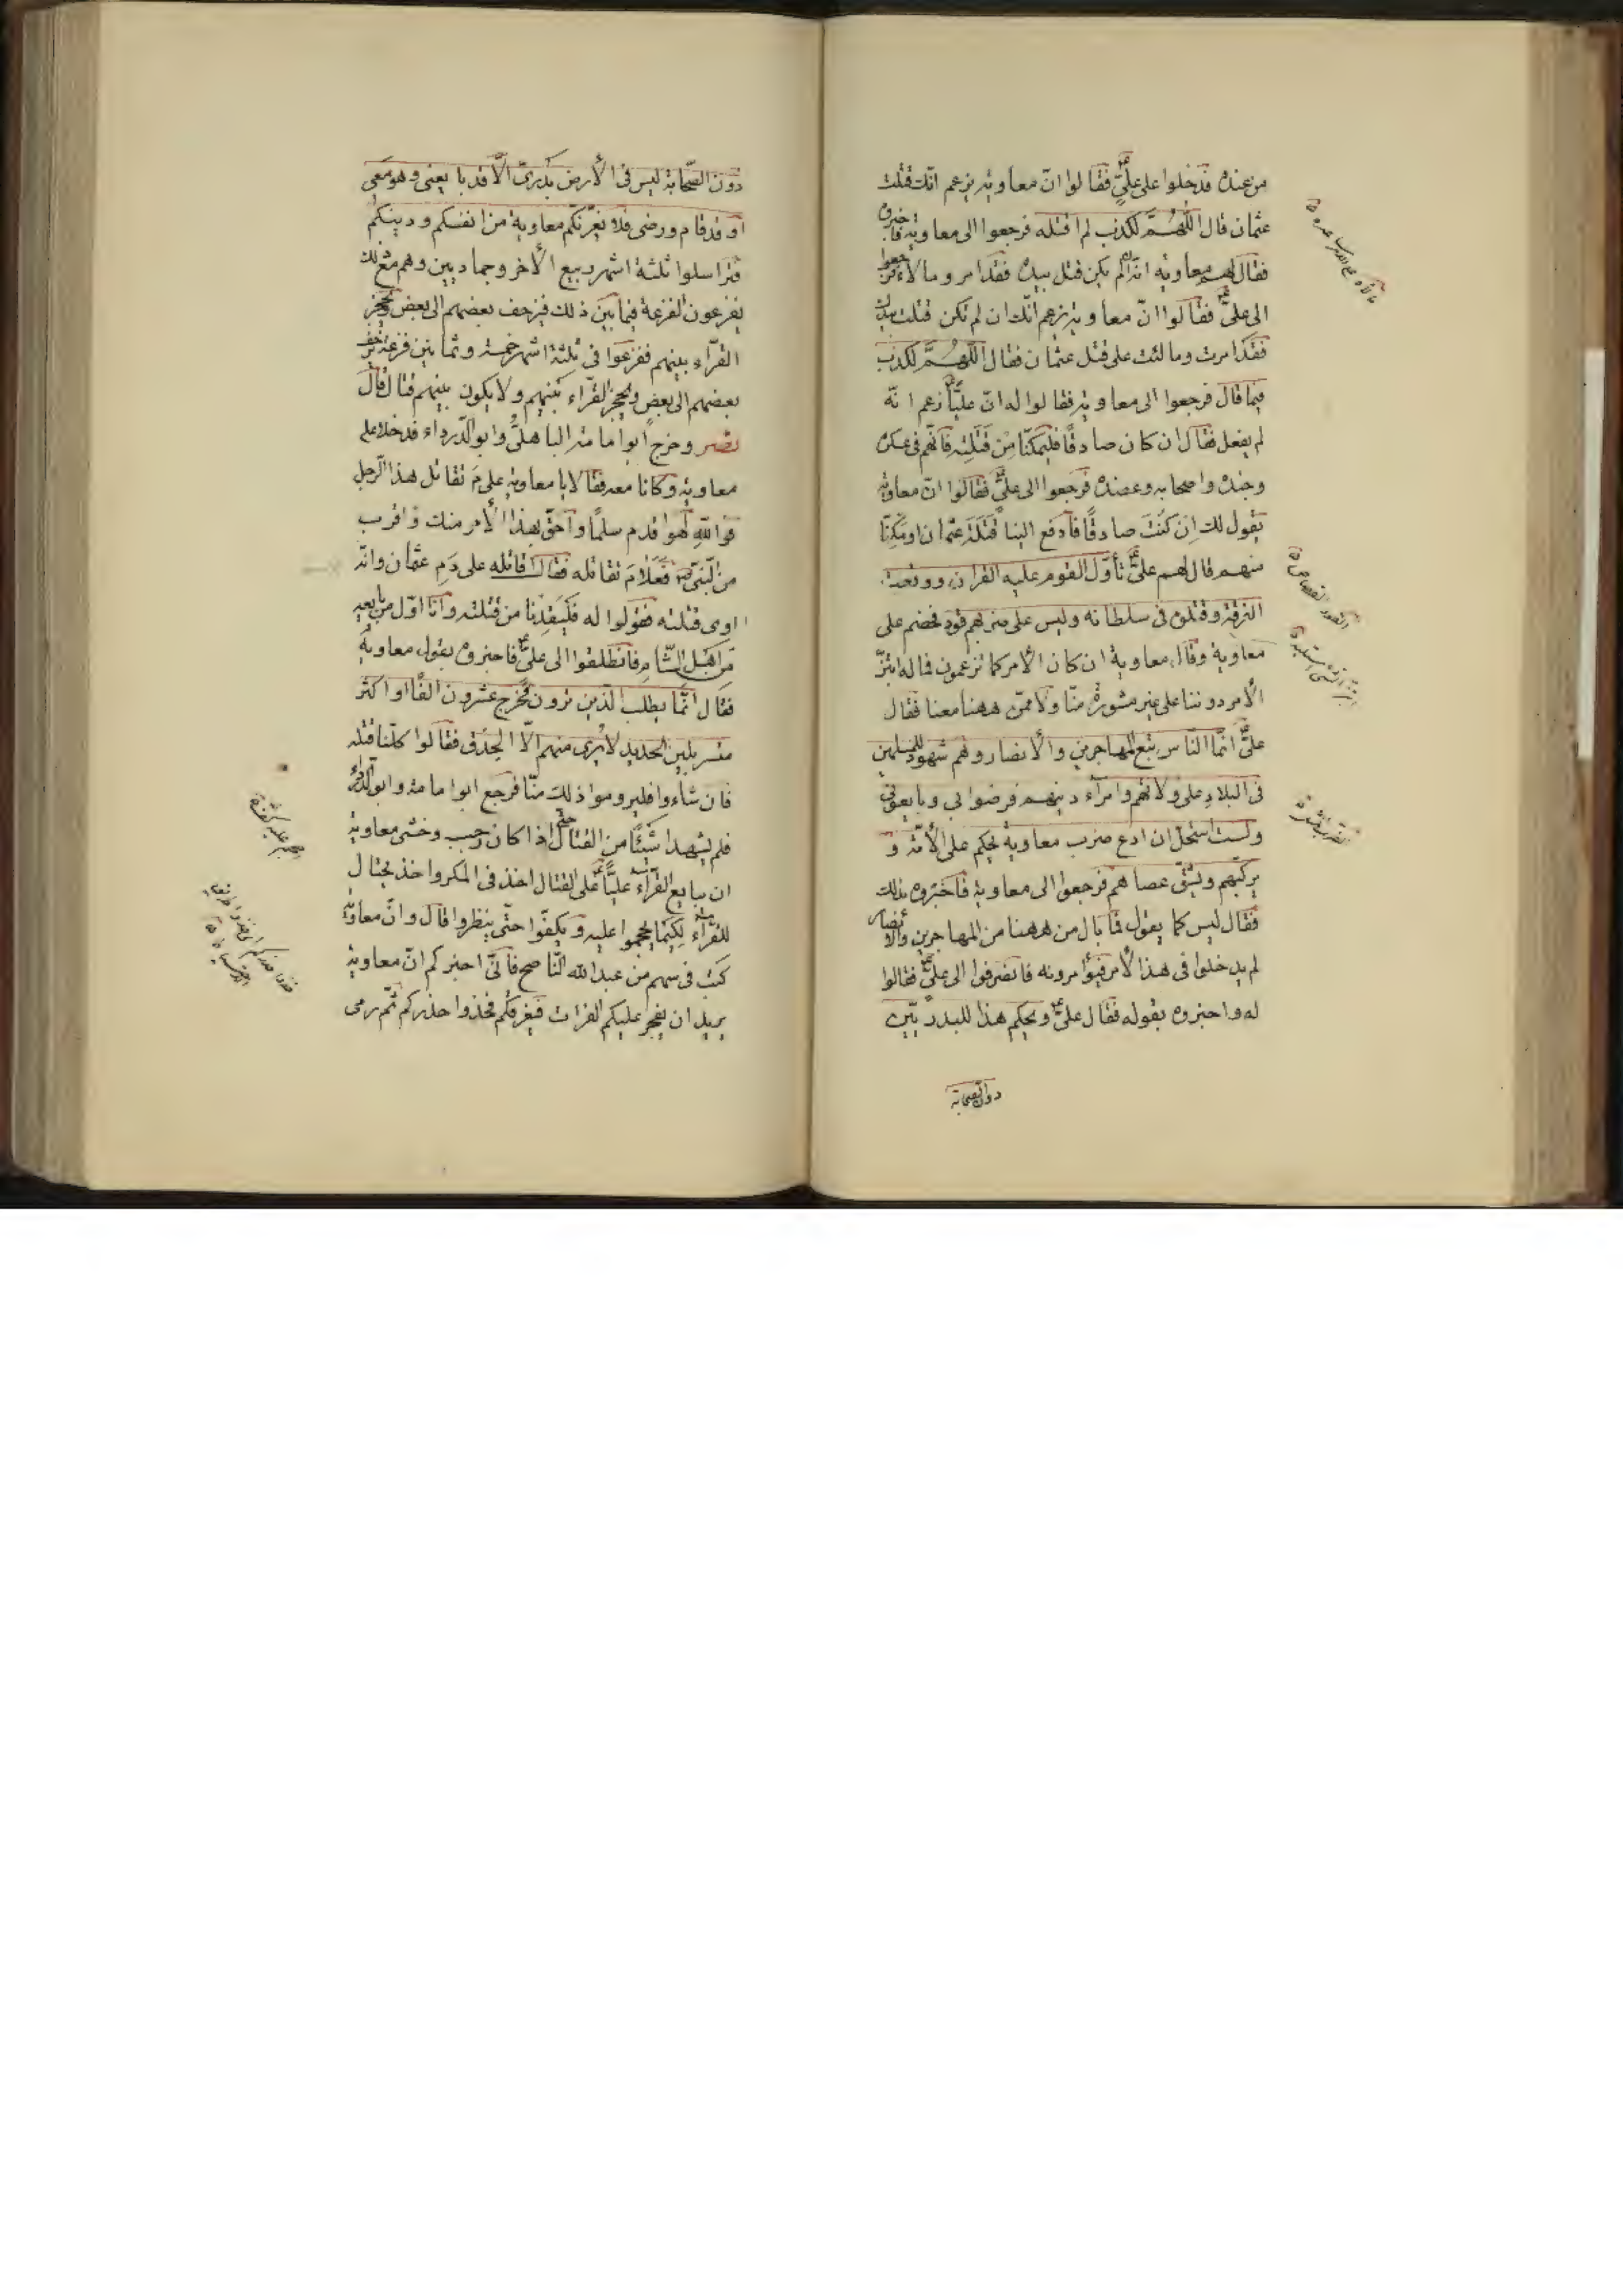 من عنده فدخلوا على عليّ ع فقالوا انّ معاوية يزعم انّك قتلت
عثمان قال اللّهمّ لكذب لم اقتله فرجعوا الى معاوية فاخبروه
فقال لهم معاوية انّه ان لم يكن قتل بيده فقد امر ومالأ فرجعوا
الى عليّ ع فقالوا انّ معاوية يزعم انّك ان لم تكن قتلت بيدك
فقد امرت ومالئت على قتل عثمان فقال اللّهمّ لكذب
فيما قال فرجعوا الى معاوية فقالوا له انّ عليّا ع زعم انه
لم يفعل فقال ان كان صادقًا فليمكنّا من قتلته فانّهم فى عسكره
وجنده واصحابه وعضده فرجعوا الى عليّ ع فقالوا انّ معاوية
يقول لك ان كنت صادقًا فادفع الينا قتلة عثمان او مكنّا
منهم قال لهم عليّ ع تأوّل القوم عليه القران ووقعت
الفرقة وقتلوه فى سلطانه وليس على ضربهم قود فخصم على
معاوية وقال معاوية ان كان الأمر كما تزعمون فما له ابتزّ
الأمر دوننا على غير مشورة منّا ولا ممّن ههنا معنا فقال
عليّ ع انّما النّاس تبع المهاجرين والأنصار وهم شهود للمسلمين
فى البلاد على ولاتهم وامرآء دينهم فرضوا بى وبايعونى
ولست استحلّ ان ادع ضرب معاوية يحكم على الأمّة و
يركبهم ويشقّ عصاهم فرجعوا الى معاوية فاخبروه بذلك
فقال ليس كما يقول فما بال من ههنا من المهاجرين والأنصار
لم يدخلوا فى هذا الأمر فيؤامرونه فانصرفوا الى عليّ ع فقالوا
له واخبروه بقوله فقال عليّ ع ويحكم هذا للبدريّين
دون الصّحابة
دون الصّحابة ليس فى الأرض بدرىّ الّا قد بايعنى وهو معى
او قد قام ورضى فلا يغرّنّكم معاوية من انفسكم ودينكم
فتراسلوا ثلثة اشهر ربيع الأخر وجماديين وهم مع ذلك
يفزعون الفزعة فيما بين ذلك فيزحف بعضهم الى بعض وتحجز
القرّاء بينهم ففزعوا فى ثلثة اشهر خمسة وثمانين فزعة يزحف
بعضهم الى بعض وتحجز القرّاء بينهم ولا يكون بينهم قتال قال
نصر وخرج ابو امامة الباهلىّ وابو الدّرداء فدخلا على
معاوية وكانا معه فقالا يا معاوية على مَ تقاتل هذا الرّجل
فوالله لهو اقدم سلمًا واحقّ بهذا الأمر منك واقرب
من النّبىّ ص فعلام تقاتله فقال اقاتله على دم عثمان وانّه
اوى قتلته فقولوا له فليقدنا من قتلته وانا اوّل من بايعه
من اهل الشّام فانطلقوا الى عليّ ع فاخبروه بقول معاوية
فقال انّما يطلب الّذين ترون فخرج عشرون الفًا او اكثر
متسربلين الحديد لا يرى منهم الّا الحدق فقالوا كلّنا قتله
فان شاءوا فليروموا ذلك منّا فرجع ابو امامة وابو الدّرداء
فلم يشهدا شيئًا من القتال حتّى اذا كان رجب وخشى معاوية
ان يبايع القرّاء عليّا ع على القتال اخذ فى المكر واخذ يحتال
للقرّاء لكيما يحجموا عليه ويكفّوا حتّى ينظروا قال وانّ معاوية
كتب فى سهم من عبد الله النّاصح فانّى اخبركم انّ معاوية
يريد ان يفجر عليكم الفرات فيغرقكم فخذوا حذركم ثمّ رمى